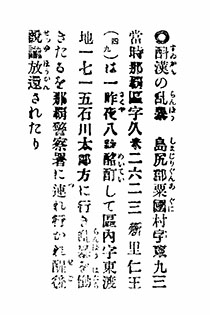 ◎酔漢の乱暴　島尻郡粟國村字東九三
當時那覇區字久米二六二三新里仁王
(四九)は一昨夜八時酩酊して區內字東渡
地一七一五石川太郎方に行き乱暴を働
きたるを那覇警察署に連れ行かれ醒後
說諭放還されたり